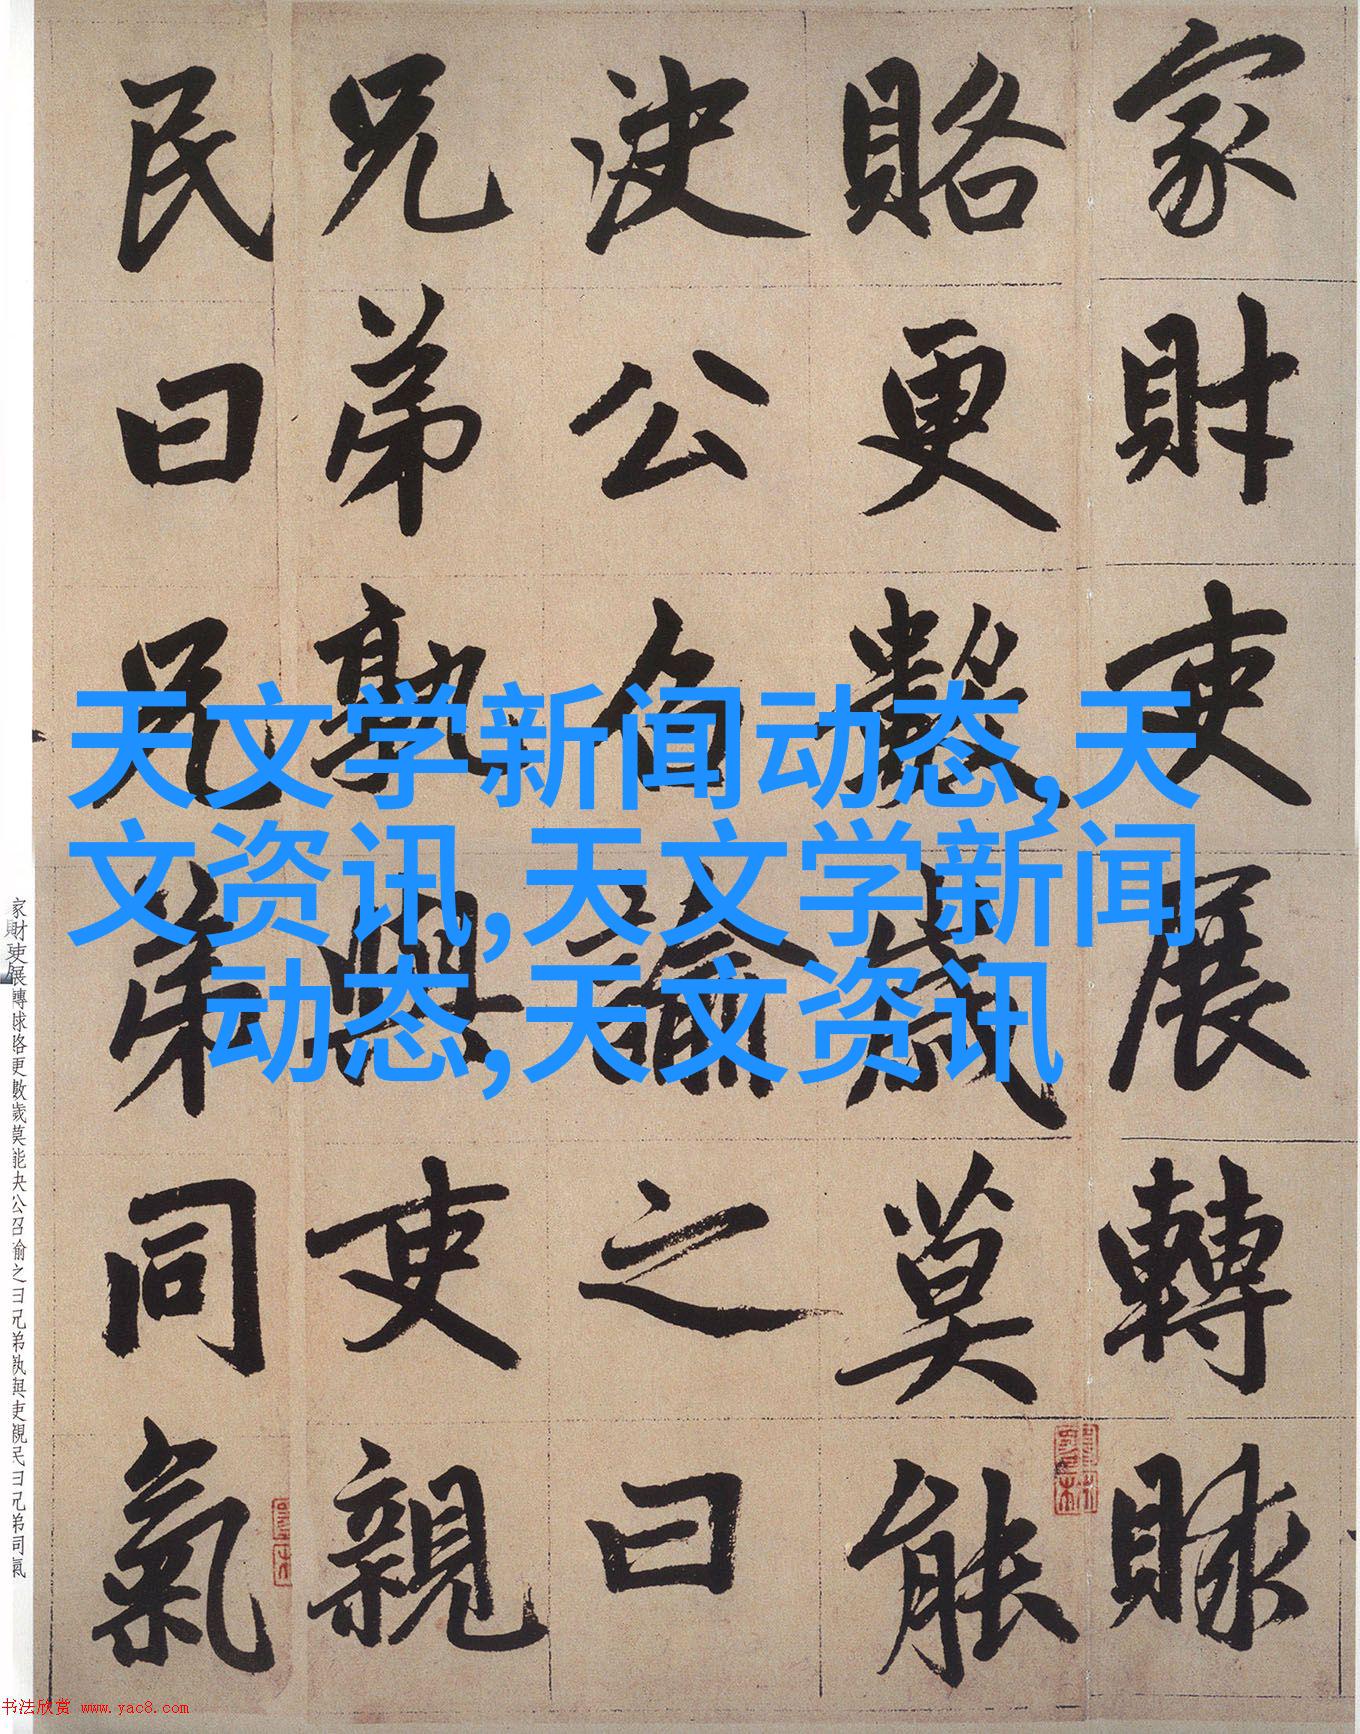 家財吏展轉賕
賂更數歲莫能
决公召諭之曰
兄弟孰與吏親
民曰兄弟同氣
天文学新闻动态,天
文资讯,天文学新闻
动态,天文资讯
家財吏展轉賕賂更數歲莫能决公召諭之曰兄弟孰與吏親民曰兄弟同氣
书法欣赏 www.yac8.com